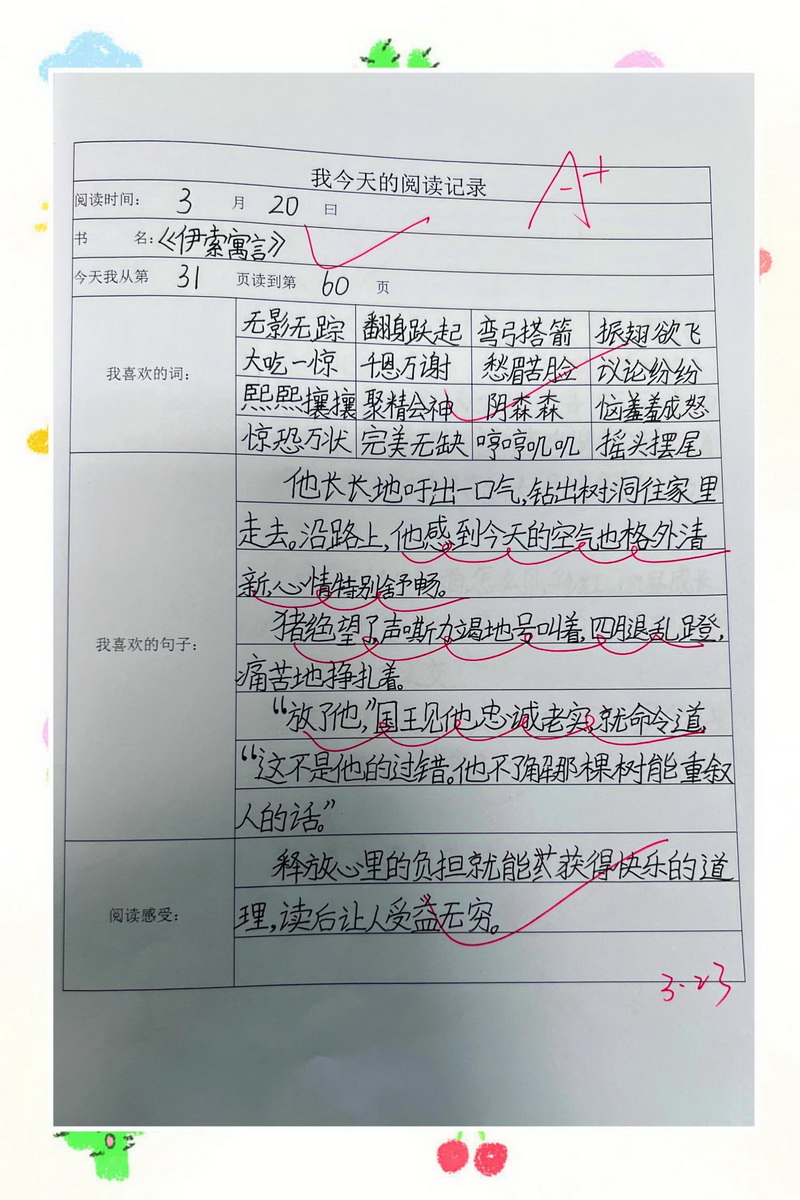 我今天的阅读记录
A+
阅读时间： 3 月 20 日
书 名：《伊索寓言》
今天我从第 31 页读到第 60 页
我喜欢的词：
无影无踪 翻身跃起 弯弓搭箭 振翅欲飞
大吃一惊 千恩万谢 愁眉苦脸 议论纷纷
熙熙攘攘 聚精会神 阴森森 恼羞羞成怒
惊恐万状 完美无缺 哼哼叽叽 摇头摆尾
我喜欢的句子：
他长长地吁出一口气，钻出树洞往家里
走去。沿路上，他感到今天的空气也格外清
新，心情特别舒畅。
猪绝望了，声嘶力竭地号叫着，四腿乱蹬，
痛苦地挣扎着。
“放了他，”国王见他忠诚老实，就命令道，
“这不是他的过错。他不了解那棵树能重叙
人的话。”
阅读感受：
释放心里的负担就能获得快乐的道
理，读后让人受益无穷。
3.23